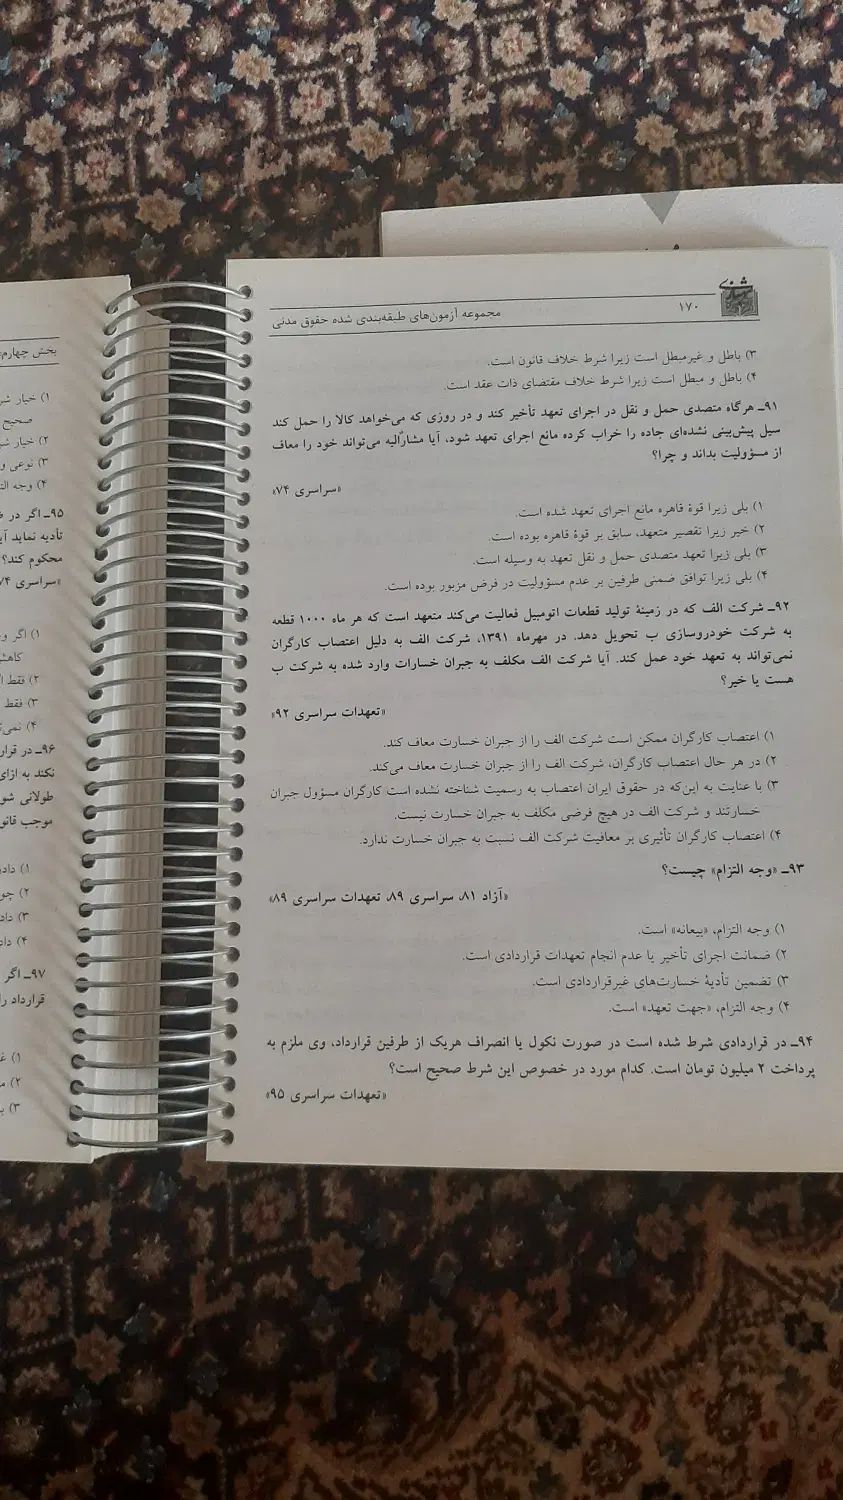 ۱۷۰
مجموعه آزمون‌های طبقه‌بندی شده حقوق مدنی
۳) باطل و غیرمبطل است زیرا شرط خلاف قانون است.
۴) باطل و مبطل است زیرا شرط خلاف مقتضای ذات عقد است.
۹۱ـ هرگاه متصدی حمل و نقل در اجرای تعهد تأخیر کند و در روزی که می‌خواهد کالا را حمل کند
سیل پیش‌بینی نشده‌ای جاده را خراب کرده مانع اجرای تعهد شود، آیا مشارٌالیه می‌تواند خود را معاف
از مسؤولیت بداند و چرا؟
«سراسری ۷۴»
۱) بلی زیرا قوهٔ قاهره مانع اجرای تعهد شده است.
۲) خیر زیرا تقصیر متعهد، سابق بر قوهٔ قاهره بوده است.
۳) بلی زیرا تعهد متصدی حمل و نقل تعهد به وسیله است.
۴) بلی زیرا توافق ضمنی طرفین بر عدم مسؤولیت در فرض مزبور بوده است.
۹۲ـ شرکت الف که در زمینهٔ تولید قطعات اتومبیل فعالیت می‌کند متعهد است که هر ماه ۱۰۰۰ قطعه
به شرکت خودروسازی ب تحویل دهد. در مهرماه ۱۳۹۱، شرکت الف به دلیل اعتصاب کارگران
نمی‌تواند به تعهد خود عمل کند. آیا شرکت الف مکلف به جبران خسارات وارد شده به شرکت ب
هست یا خیر؟
«تعهدات سراسری ۹۲»
۱) اعتصاب کارگران ممکن است شرکت الف را از جبران خسارت معاف کند.
۲) در هر حال اعتصاب کارگران، شرکت الف را از جبران خسارت معاف می‌کند.
۳) با عنایت به این‌که در حقوق ایران اعتصاب به رسمیت شناخته نشده است کارگران مسؤول جبران
خسارتند و شرکت الف در هیچ فرضی مکلف به جبران خسارت نیست.
۴) اعتصاب کارگران تأثیری بر معافیت شرکت الف نسبت به جبران خسارت ندارد.
۹۳ـ «وجه التزام» چیست؟
«آزاد ۸۱، سراسری ۸۹، تعهدات سراسری ۸۹»
۱) وجه التزام، «بیعانه» است.
۲) ضمانت اجرای تأخیر یا عدم انجام تعهدات قراردادی است.
۳) تضمین تأدیهٔ خسارت‌های غیرقراردادی است.
۴) وجه التزام، «جهت تعهد» است.
۹۴ـ در قراردادی شرط شده است در صورت نکول یا انصراف هریک از طرفین قرارداد، وی ملزم به
پرداخت ۲ میلیون تومان است. کدام مورد در خصوص این شرط صحیح است؟
«تعهدات سراسری ۹۵»
بخش چهارم
۱) خیار
صحیح
۲) خیار
۳) نوعی و
۴) وجه
۹۵ـ اگر در
تأدیه نماید
محکوم کند؟
«سراسری
۱) اگر
۲) فقط
۳) فقط
۴)
۹۶ـ در
نکند به ازای
طولانی
موجب
۱)
۲)
۳)
۴)
۹۷ـ اگر
قرارداد را
۱)
۲)
۳)